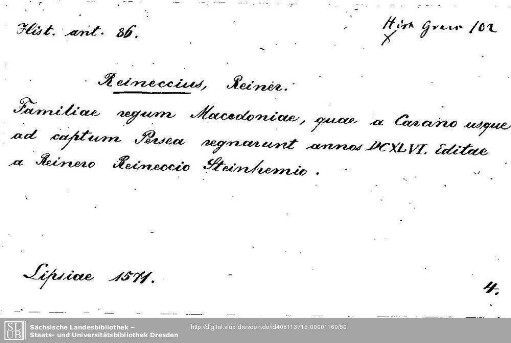 Hist. ant. 86.
Hist Graec 102
Reineccius, Reiner.
Familiae regum Macedoniae, quae a Carano usque
ad captum Persea regnarunt annos DCXLVI. Editae
a Reinero Reineccio Steinhemio.
Lipsiae 1571.
4.
SLUB
Sächsische Landesbibliothek –
Staats- und Universitätsbibliothek Dresden